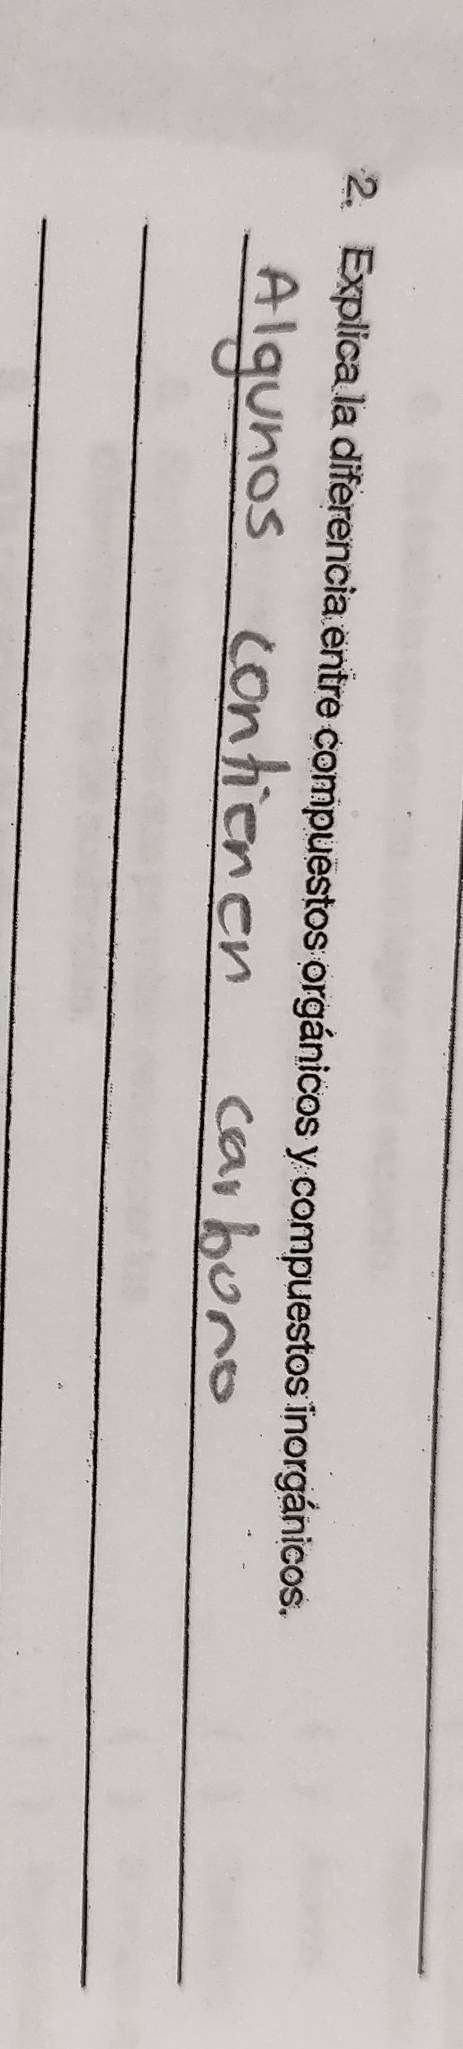 2. Explica la diferencia entre compuestos orgánicos y compuestos inorgánicos.
Algunos contienen carbono